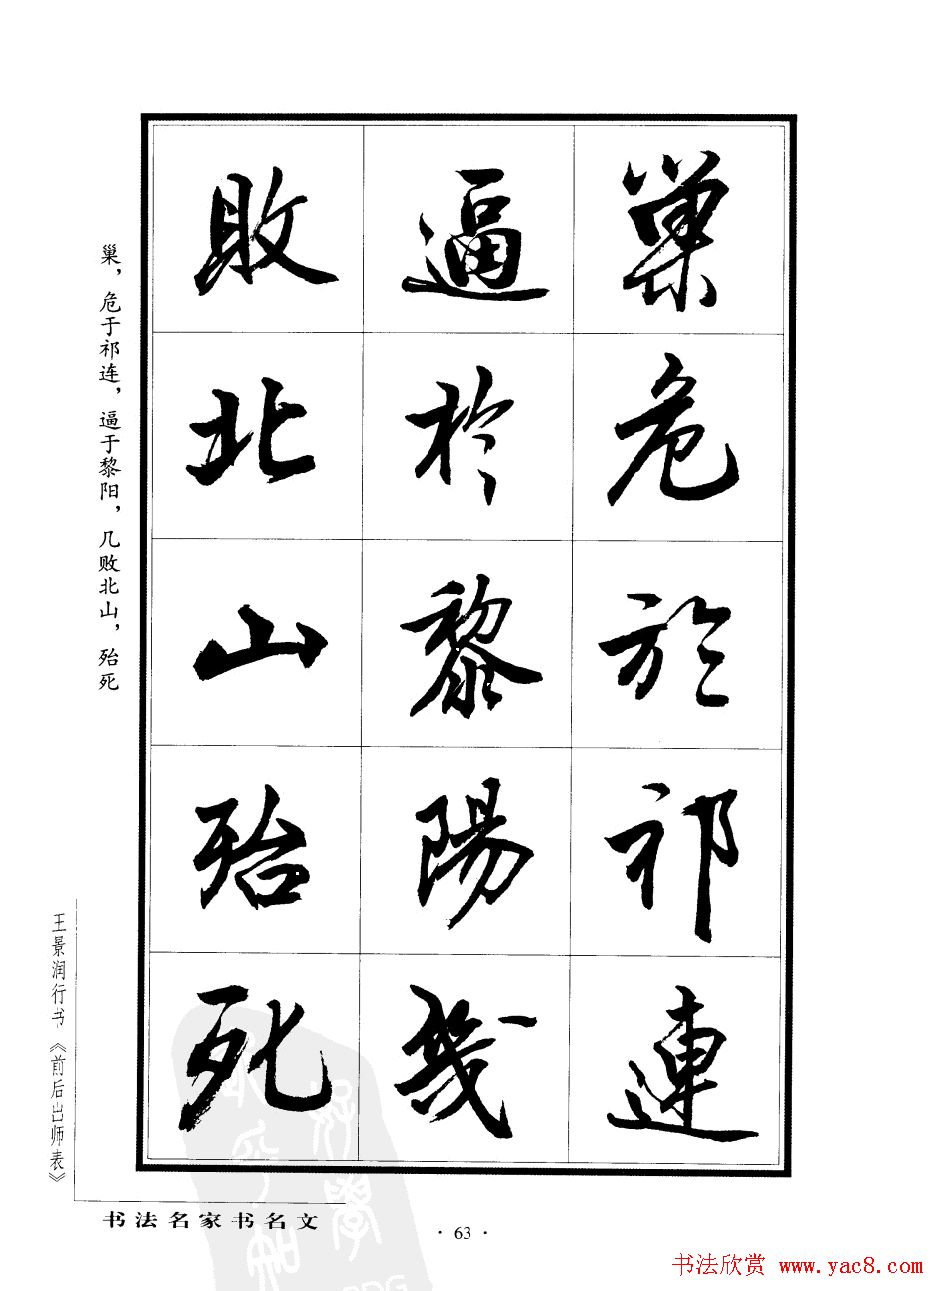 巢危於祁連
逼於黎陽幾
敗北山殆死
巢，危于祁连，逼于黎阳，几败北山，殆死
王景润行书《前后出师表》
书法名家书名文
·63·
书法欣赏 www.yac8.com